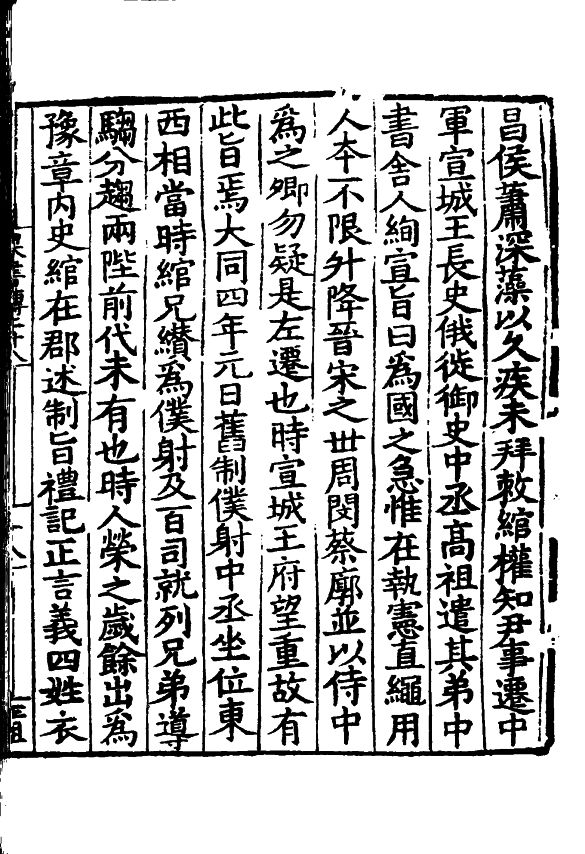 昌侯蕭深藻以久疾未拜敕綰權知尹事遷中
軍宣城王長史俄徙御史中丞高祖遣其弟中
書舍人絢宣旨曰爲國之急惟在執憲直繩用
人夲不限升降晉宋之丗周閔蔡廓並以侍中
爲之卿勿疑是左遷也時宣城王府望重故有
此旨焉大同四年元日舊制僕射中丞坐位東
西相當時綰兄纉爲僕射及百司就列兄弟導
騶分趨兩陛前代未有也時人榮之歲餘出爲
豫章内史綰在郡述制旨禮記正言義四姓衣